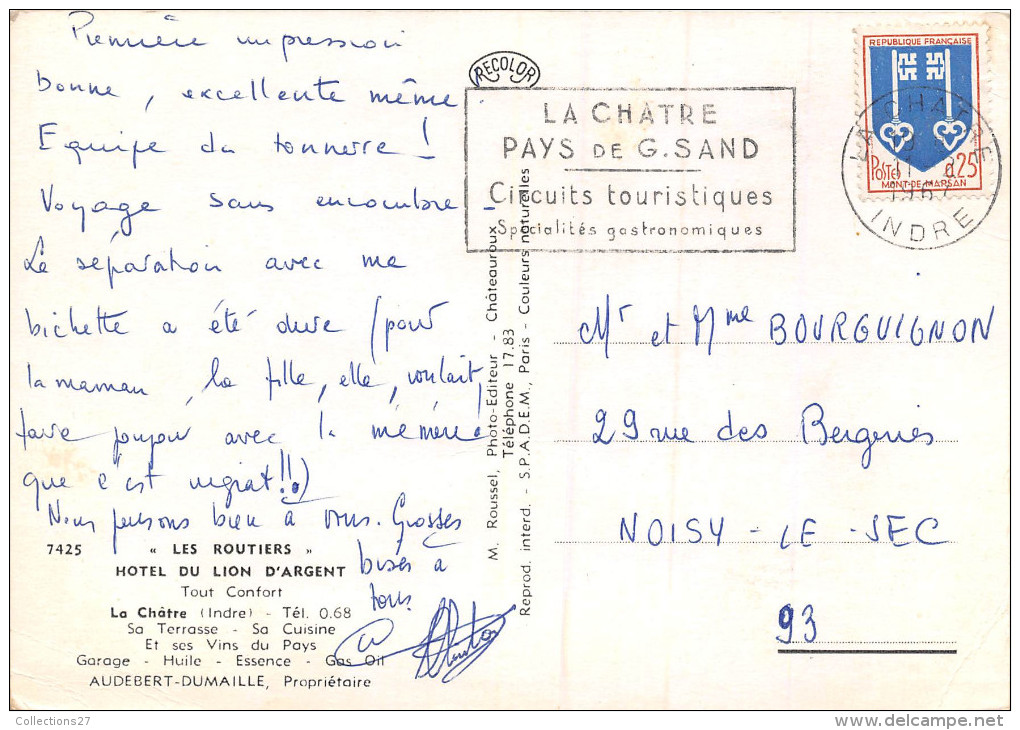 Première impression
bonne, excellente même !
Equipe du tonnerre !
Voyage sans encombre -
La séparation avec ma
bichette a été dure (pour
la maman, la fille, elle, voulait,
faire joujou avec la mémère !
que c'est ingrat !!)
Nous pensons bien à vous. Grosses
bises à
tous
7425 « LES ROUTIERS »
HOTEL DU LION D'ARGENT
Tout Confort
La Châtre (Indre) - Tél. 0.68
Sa Terrasse - Sa Cuisine
Et ses Vins du Pays
Garage - Huile - Essence - Gas Oil
AUDEBERT-DUMAILLE, Propriétaire
M. Roussel, Photo-Editeur - Châteauroux
Téléphone 17.83
Reprod. interd. - S.P.A.D.E.M., Paris - Couleurs naturelles
RECOLOR
LA CHATRE
PAYS DE G. SAND
Circuits touristiques
Spécialités gastronomiques
REPUBLIQUE FRANÇAISE
POSTES 0,25
MONT-DE-MARSAN
LA CHATRE
INDRE
Mr et Mme BOURGUIGNON
29 rue des Bergeries
NOISY - LE - SEC
93
Collections27
www.delcampe.net